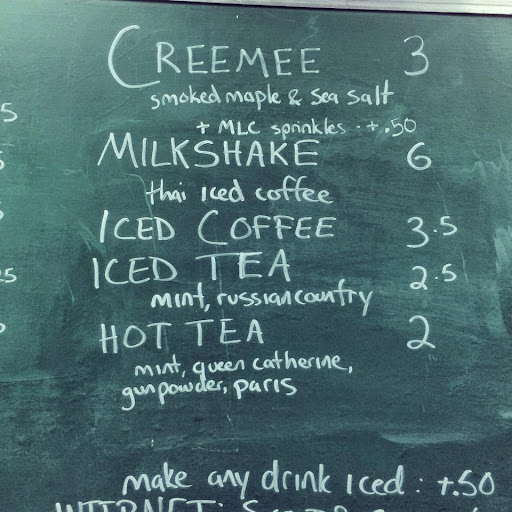 CREEMEE 3
smoked maple & sea salt
+ MLC sprinkles · +.50
MILKSHAKE 6
thai iced coffee
ICED COFFEE 3.5
ICED TEA 2.5
mint, russian country
HOT TEA 2
mint, queen catherine,
gunpowder, paris
make any drink iced : +.50
INTERNET: